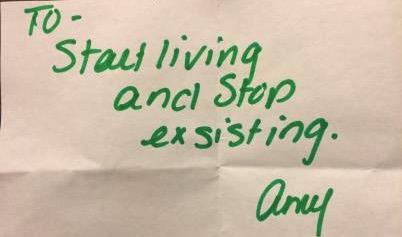 To -
Start living
and Stop
exsisting.
Amy